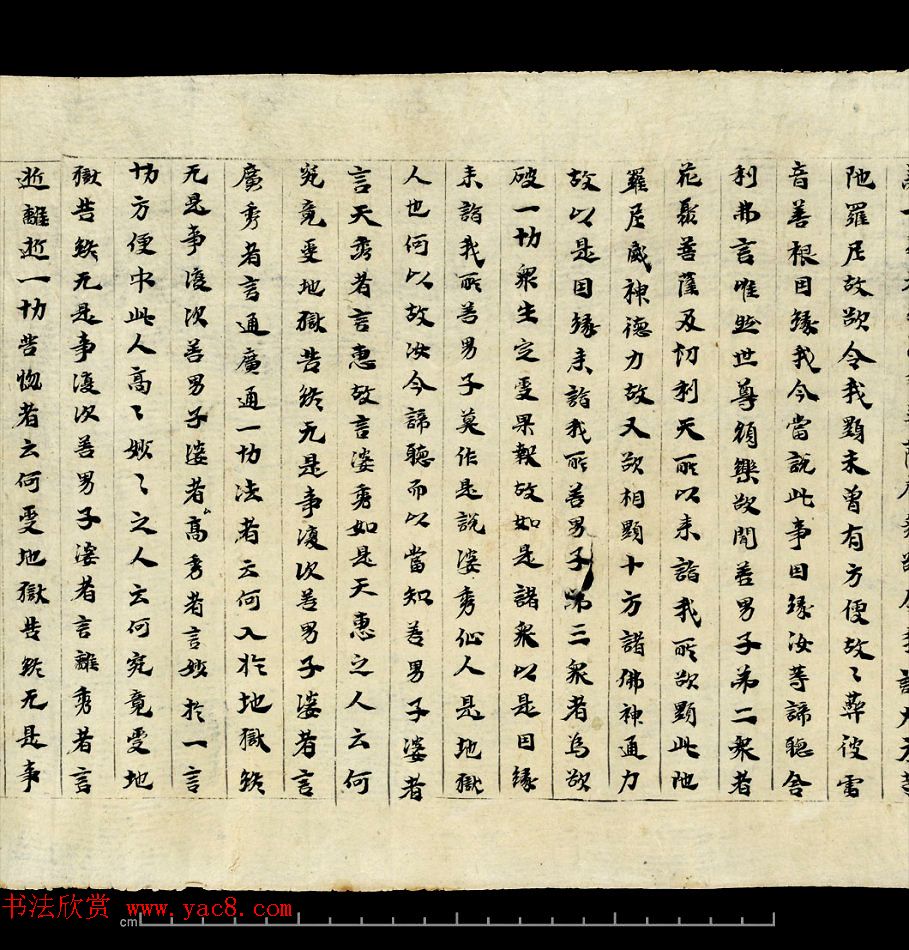 陁羅尼故欲令我顯未曾有方便故〻葬彼雷
音善根因縁我今當說此事因縁汝等諦聽舍
利弗言唯然世尊願樂欲聞善男子弟二衆者
花聚善薩及忉利天所以来詣我所欲顯此陁
羅尼威神德力故又欲相顯十方諸佛神通力
故以是因縁来詣我所善男子弟三衆者為欲
破一切衆生定受果報故如是諸衆以是因縁
来詣我所善男子莫作是說婆秀仙人是地獄
人也何以故汝今諦聽而以當知善男子婆者
言天秀者言惠故言婆秀如是天惠之人云何
究竟受地獄苦終无是事復次善男子婆者言
廣秀者言通廣通一切法者云何入於地獄終
无是事復次善男子婆者高秀者言妙於一言
切方便中此人高〻妙〻之人云何究竟受地
獄苦終无是事復次善男子婆者言離秀者言
逝離逝一切苦惚者云何受地獄苦終无是事
书法欣赏 www.yac8.com
cm